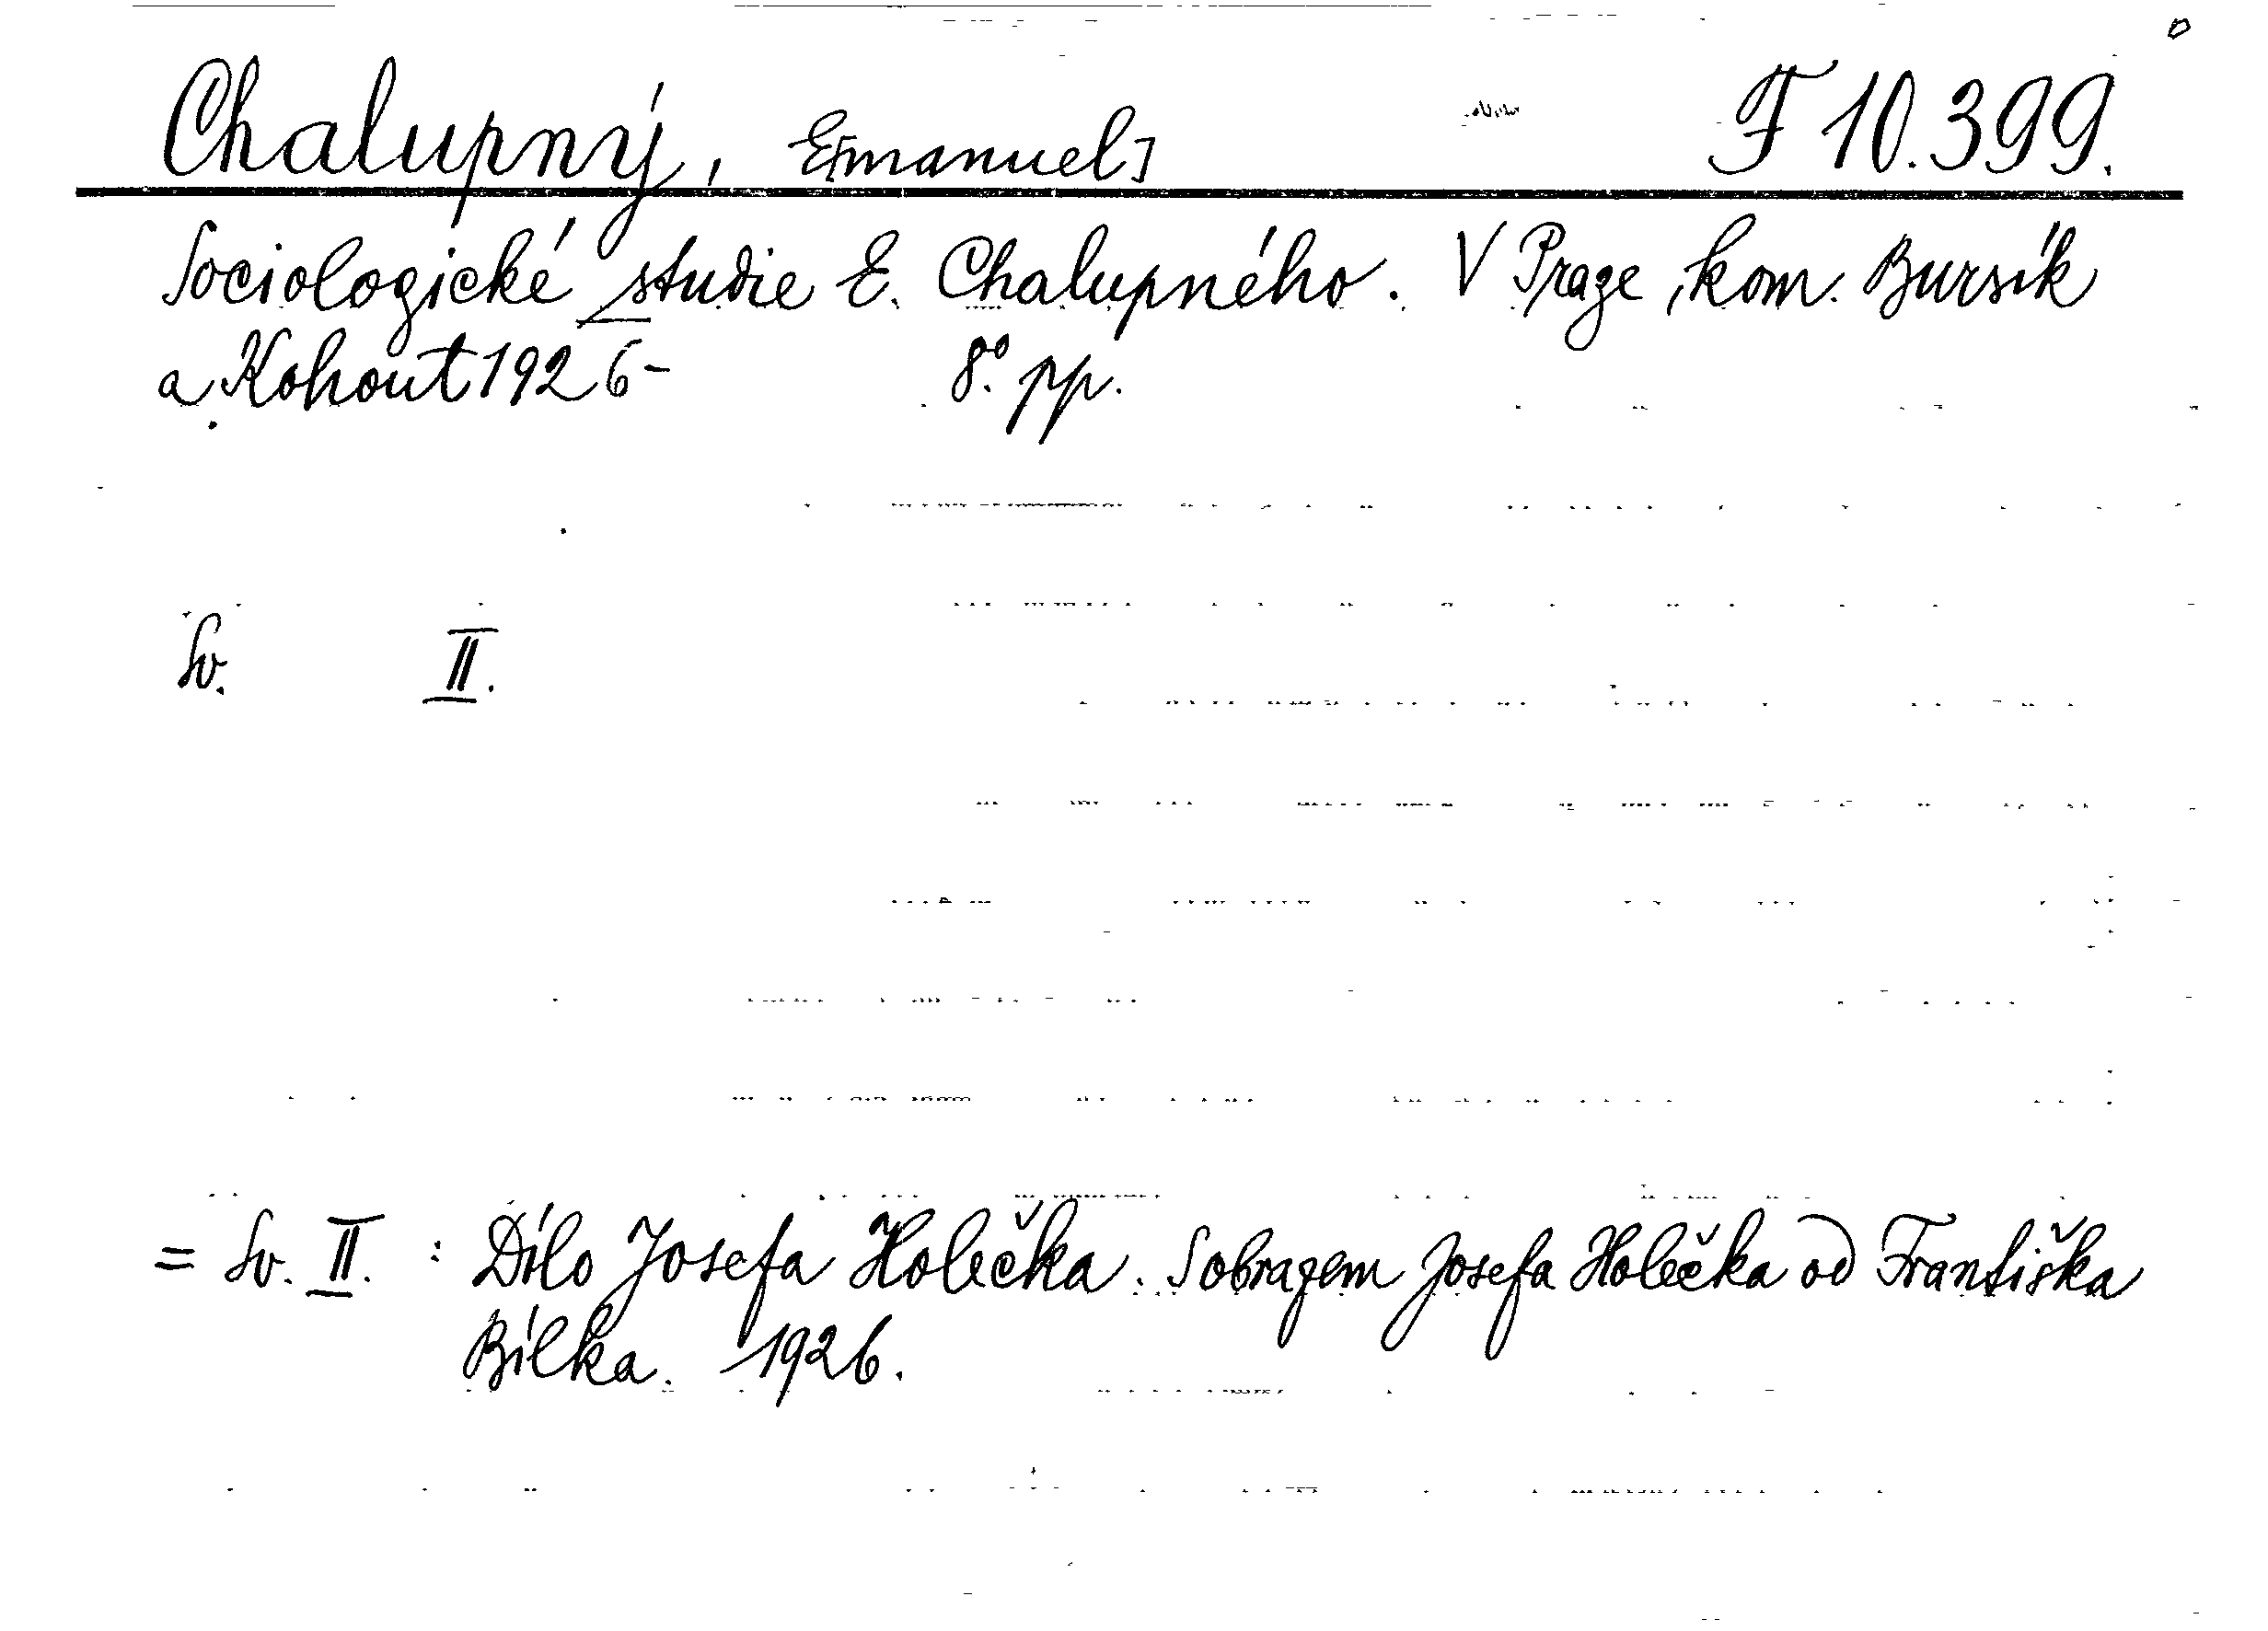 Chalupný, E[manuel] F 10.399.
Sociologické studie E. Chalupného. V Praze, kom. Bursík
a Kohout 1926- 8° pp.
Sv. II.
= Sv. II. : Dílo Josefa Holečka. S obrazem Josefa Holečka od Františka
Bílka. 1926.